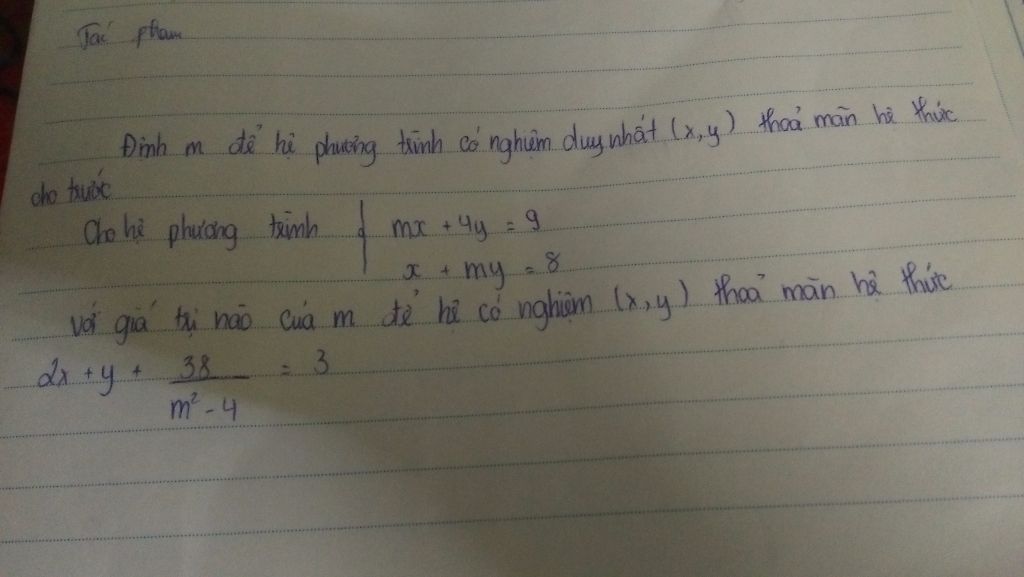 Tác phẩm
Định m để hệ phương trình có nghiệm duy nhất (x,y) thoả mãn hệ thức
cho trước
Cho hệ phương trình { mx + 4y = 9
x + my = 8
Với giá trị nào của m để hệ có nghiệm (x,y) thoả mãn hệ thức
2x + y + 38/(m² - 4) = 3